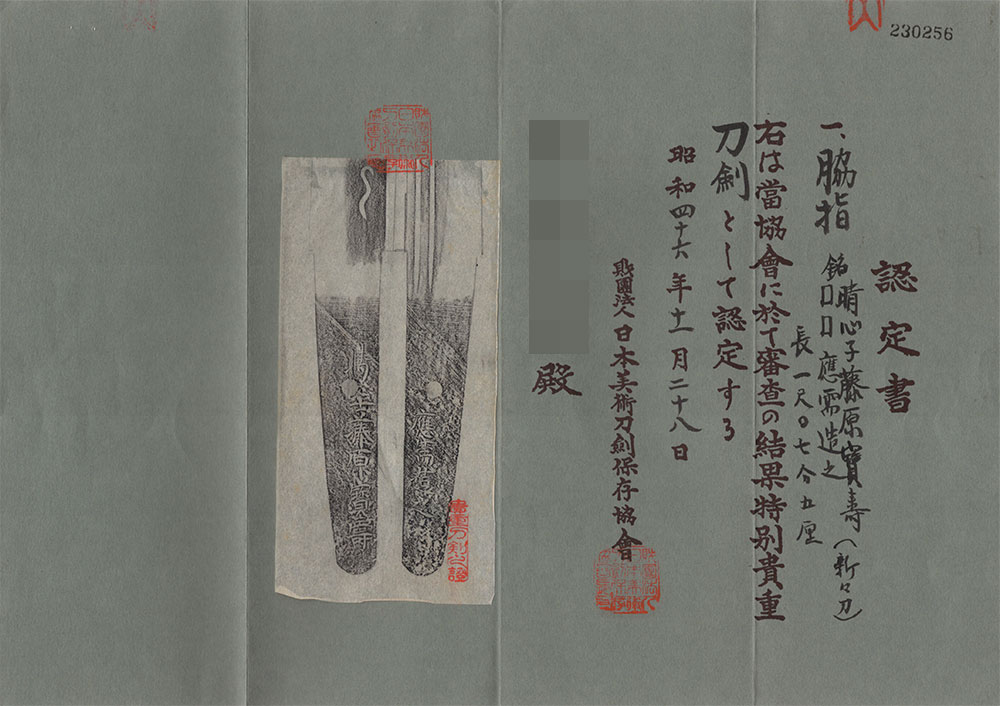 230256
認定書
一、脇指
銘 晴心子藤原寳壽(新々刀)
口口應需造之
長一尺〇七分五厘
右は當協會に於て審査の結果特別貴重
刀劍として認定する
昭和四十六年十一月二十八日
財團法人日本美術刀劍保存協會
殿